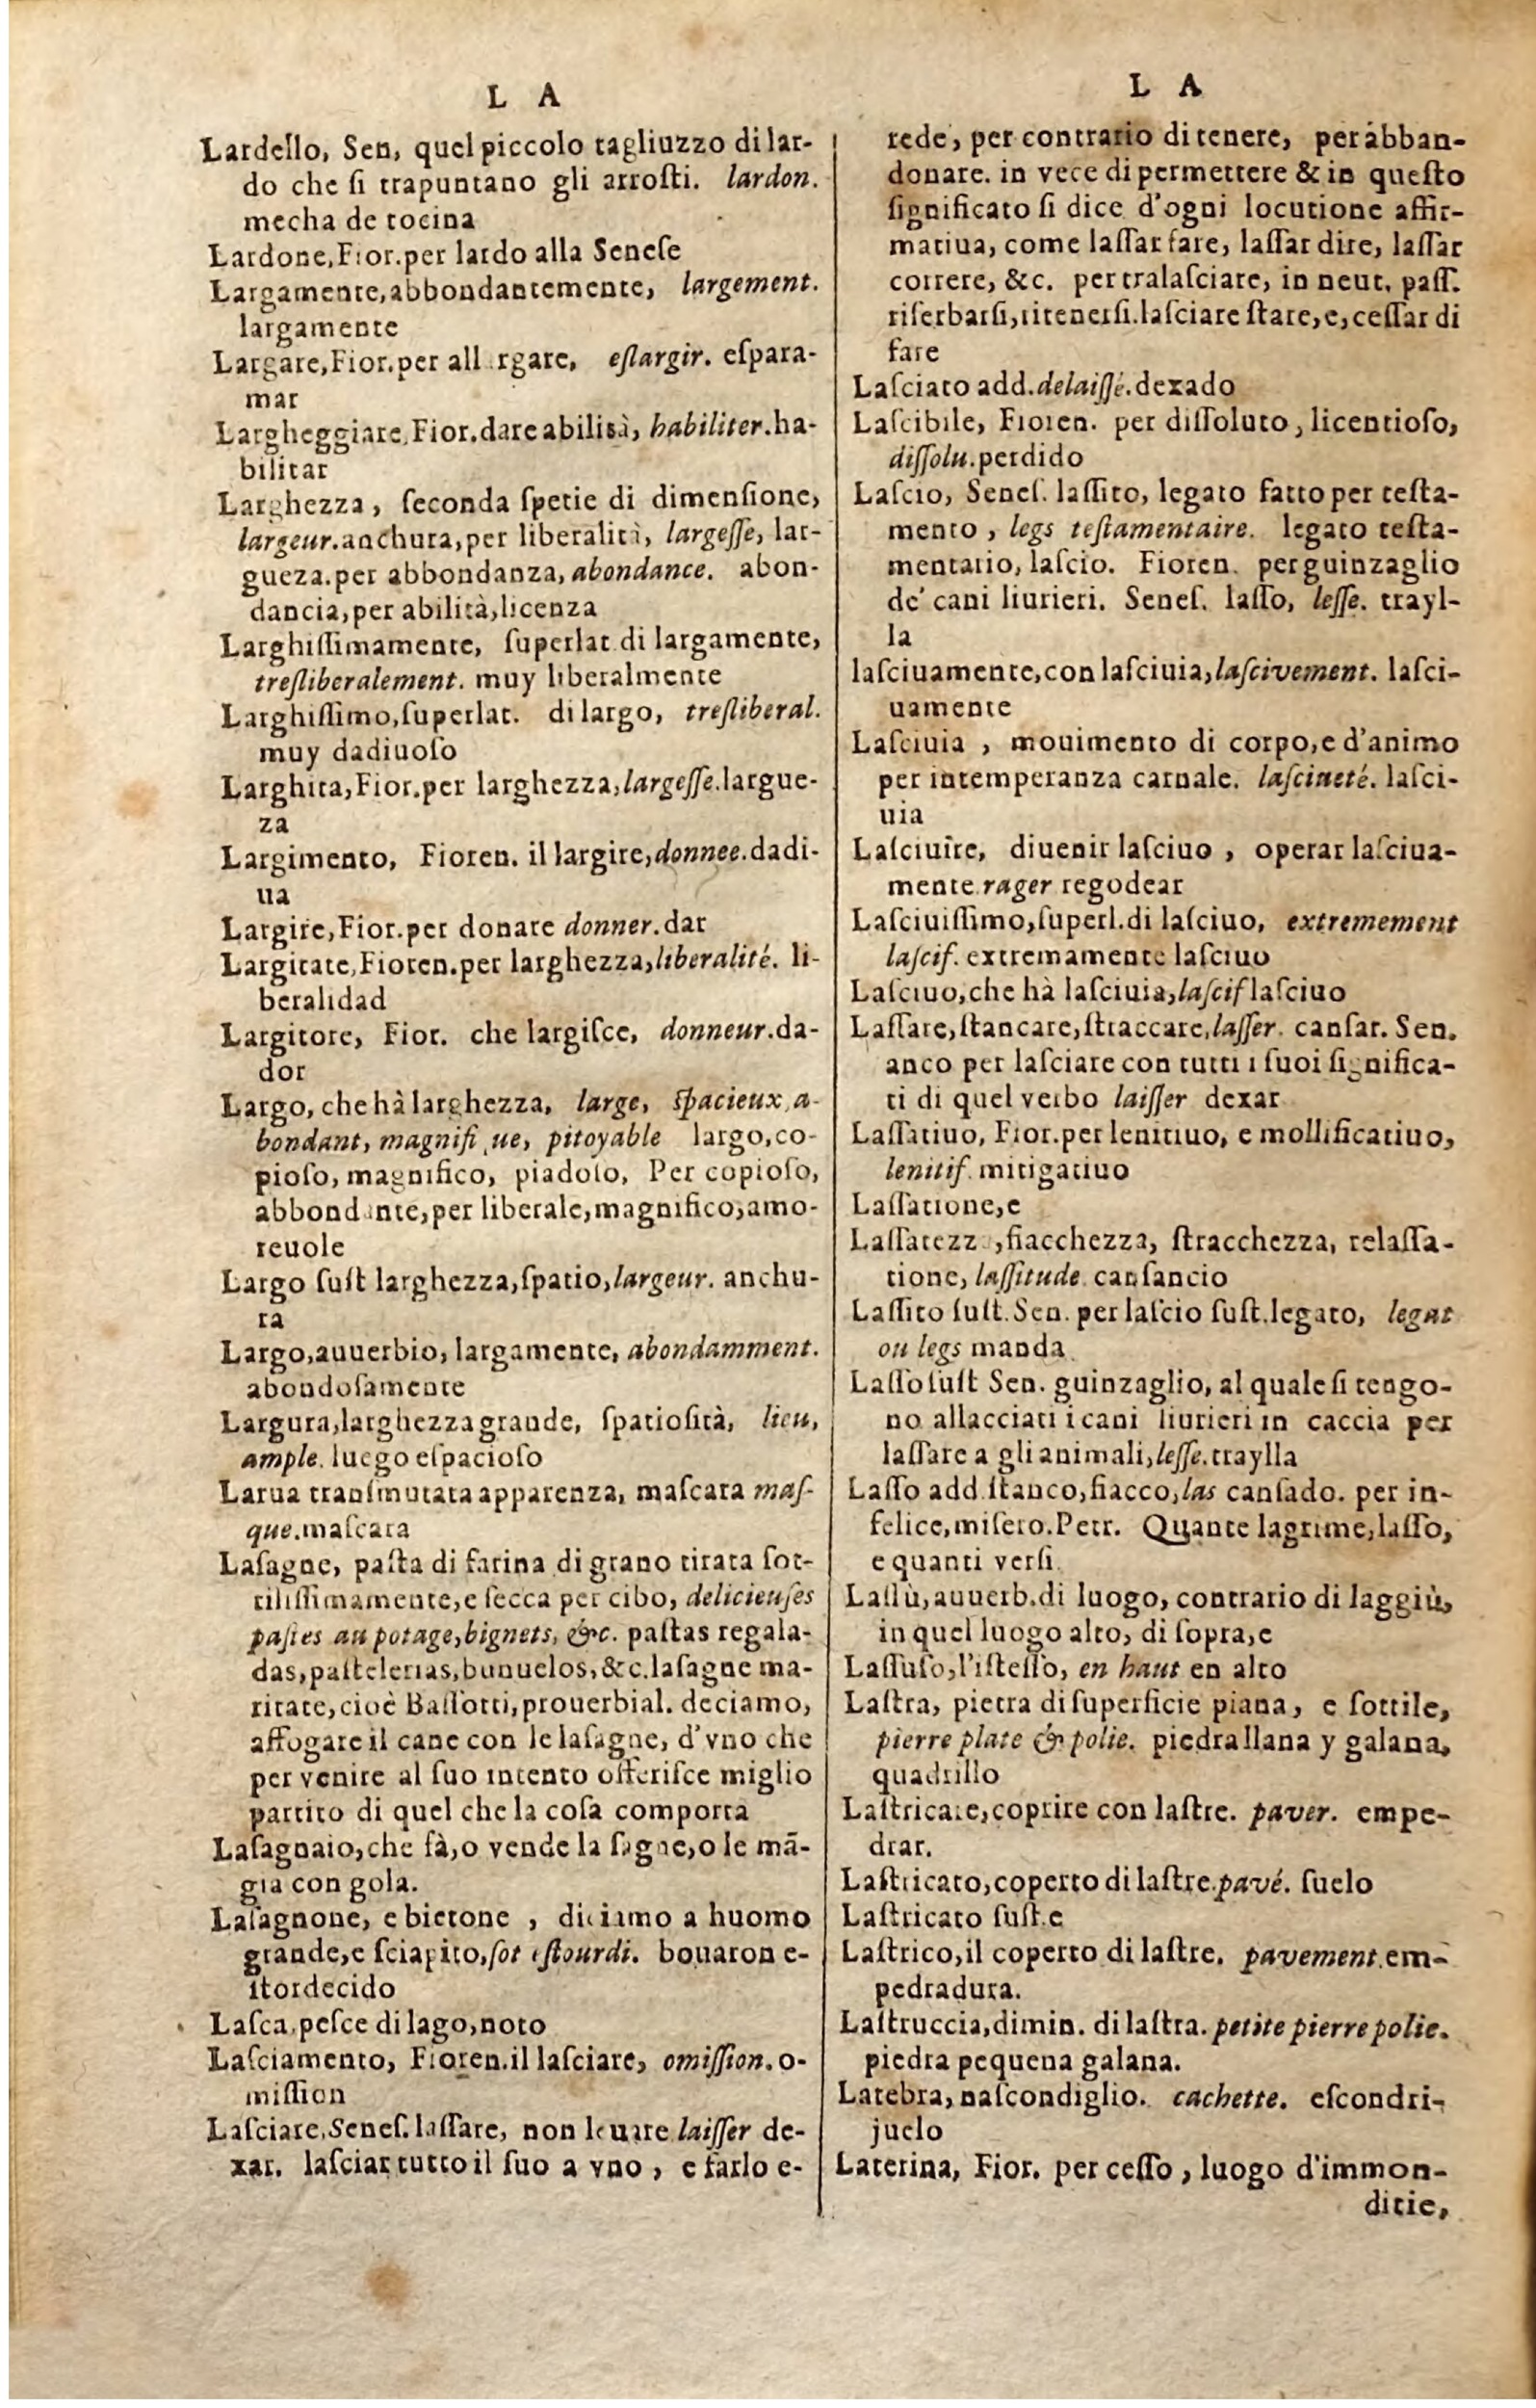 L A
Lardello, Sen, quel piccolo tagliuzzo di lar-
do che ſi trapuntano gli arroſti. lardon.
mecha de tocina
Lardone, Fior. per lardo alla Seneſe
Largamente, abbondantemente, largement.
largamente
Largare, Fior. per allargare, eſlargir. eſpara-
mar
Largheggiare, Fior. dare abilità, habiliter. ha-
bilitar
Larghezza, ſeconda ſpetie di dimenſione,
largeur. anchura, per liberalità, largeſſe, lar-
gueza. per abbondanza, abondance. abon-
dancia, per abilità, licenza
Larghiſſimamente, ſuperlat. di largamente,
treſliberalement. muy liberalmente
Larghiſſimo, ſuperlat. di largo, treſliberal.
muy dadiuoſo
Larghita, Fior. per larghezza, largeſſe. largue-
za
Largimento, Fioren. il largire, donnee. dadi-
ua
Largire, Fior. per donare donner. dar
Largitate, Fioren. per larghezza, liberalité. li-
beralidad
Largitore, Fior. che largiſce, donneur. da-
dor
Largo, che hà larghezza, large, ſpacieux, a-
bondant, magnifique, pitoyable largo, co-
pioſo, magnifico, piadoſo, Per copioſo,
abbondante, per liberale, magnifico, amo-
reuole
Largo ſuſt larghezza, ſpatio, largeur. anchu-
ra
Largo, auuerbio, largamente, abondamment.
abondoſamente
Largura, larghezza grande, ſpatioſità, lieu,
ample. luego eſpacioſo
Larua tranſmutata apparenza, maſcara maſ-
que. maſcara
Laſagne, paſta di farina di grano tirata ſot-
tiliſſimamente, e ſecca per cibo, delicieuſes
paſtes au potage, bignets, &c. paſtas regala-
das, paſtelerias, bunuelos, &c. laſagne ma-
ritate, cioè Baſſotti, prouerbial. deciamo,
affogare il cane con le laſagne, d'vno che
per venire al ſuo intento offeriſce miglio
partito di quel che la coſa comporta
Laſagnaio, che fà, o vende la ſagne, o le mā-
gia con gola.
Laſagnone, e bietone, diciamo a huomo
grande, e ſciapito, ſot eſtourdi. bouaron e-
ſtordecido
Laſca, peſce di lago, noto
Laſciamento, Fioren. il laſciare, omiſſion. o-
miſſion
Laſciare, Seneſ. laſſare, non leuare laiſſer de-
xar. laſciar tutto il ſuo a vno, e farlo e-
L A
rede, per contrario di tenere, per abban-
donare. in vece di permettere & in queſto
ſignificato ſi dice d'ogni locutione affir-
matiua, come laſſar fare, laſſar dire, laſſar
correre, &c. per tralaſciare, in neut. paſſ.
riſerbarſi, ritenerſi. laſciare ſtare, e, ceſſar di
fare
Laſciato add. delaiſſé. dexado
Laſcibile, Fioren. per diſſoluto, licentioſo,
diſſolu. perdido
Laſcio, Seneſ. laſſito, legato fatto per teſta-
mento, legs teſtamentaire. legato teſta-
mentario, laſcio. Fioren. per guinzaglio
de' cani liurieri. Seneſ. laſſo, leſſe. trayl-
la
laſciuamente, con laſciuia, laſcivement. laſci-
uamente
Laſciuia, mouimento di corpo, e d'animo
per intemperanza carnale. laſciueté. laſci-
uia
Laſciuire, diuenir laſciuo, operar laſciua-
mente rager regodear
Laſciuiſſimo, ſuperl. di laſciuo, extremement
laſcif. extremamente laſciuo
Laſciuo, che hà laſciuia, laſcif laſciuo
Laſſare, ſtancare, ſtraccare, laſſer. canſar. Sen.
anco per laſciare con tutti i ſuoi ſignifica-
ti di quel verbo laiſſer dexar
Laſſatiuo, Fior. per lenitiuo, e mollificatiuo,
lenitif. mitigatiuo
Laſſatione, e
Laſſatezza, fiacchezza, ſtracchezza, relaſſa-
tione, laſſitude. canſancio
Laſſito ſuſt. Sen. per laſcio ſuſt. legato, legat
ou legs manda
Laſſo ſuſt Sen. guinzaglio, al quale ſi tengo-
no allacciati i cani liurieri in caccia per
laſſare a gli animali, leſſe. traylla
Laſſo add. ſtanco, fiacco, las canſado. per in-
felice, miſero. Petr. Quante lagrime, laſſo,
e quanti verſi
Laſſù, auuerb. di luogo, contrario di laggiù,
in quel luogo alto, di ſopra, e
Laſſuſo, l'iſteſſo, en haut en alto
Laſtra, pietra di ſuperficie piana, e ſottile,
pierre plate & polie. piedra llana y galana,
quadrillo
Laſtricare, coprire con laſtre. paver. empe-
drar.
Laſtricato, coperto di laſtre. pavé. ſuelo
Laſtricato ſuſt. e
Laſtrico, il coperto di laſtre. pavement. em-
pedradura.
Laſtruccia, dimin. di laſtra. petite pierre polie.
piedra pequena galana.
Latebra, naſcondiglio. cachette. eſcondri-
juelo
Laterina, Fior. per ceſſo, luogo d'immon-
ditie,